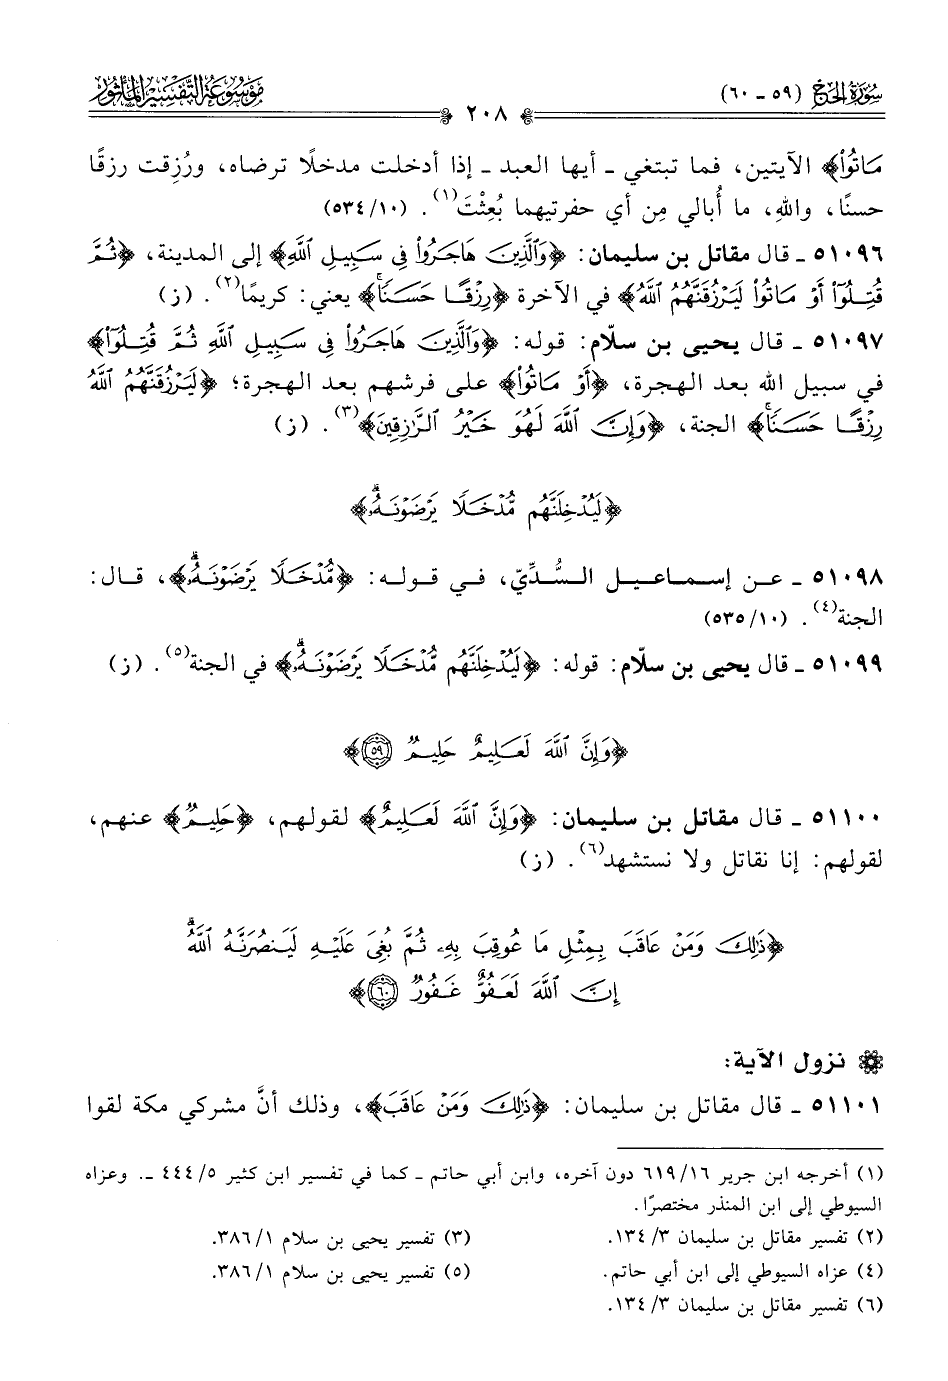 سُورَةُ الحَجّ (٥٩ - ٦٠)
٢٠٨
مَوْسُوعَةُ التَّفْسِيْرِ المَأْثُور
مَاتُوا۟﴾ الآيتين، فما تبتغي ـ أيها العبد ـ إذا أدخلت مدخلًا ترضاه، ورُزِقت رزقًا
حسنًا، واللهِ، ما أُبالي مِن أي حفرتيهما بُعِثْتَ(١). (٥٣٤/١٠)
٥١٠٩٦ ـ قال مقاتل بن سليمان: ﴿وَٱلَّذِينَ هَاجَرُوا۟ فِى سَبِيلِ ٱللَّهِ﴾ إلى المدينة، ﴿ثُمَّ
قُتِلُوٓا۟ أَوْ مَاتُوا۟ لَيَرْزُقَنَّهُمُ ٱللَّهُ﴾ في الآخرة ﴿رِزْقًا حَسَنًاۚ﴾ يعني: كريمًا(٢). (ز)
٥١٠٩٧ ـ قال يحيى بن سلّام: قوله: ﴿وَٱلَّذِينَ هَاجَرُوا۟ فِى سَبِيلِ ٱللَّهِ ثُمَّ قُتِلُوٓا۟﴾
في سبيل الله بعد الهجرة، ﴿أَوْ مَاتُوا۟﴾ على فرشهم بعد الهجرة؛ ﴿لَيَرْزُقَنَّهُمُ ٱللَّهُ
رِزْقًا حَسَنًاۚ﴾ الجنة، ﴿وَإِنَّ ٱللَّهَ لَهُوَ خَيْرُ ٱلرَّٰزِقِينَ﴾(٣). (ز)
﴿لَيُدْخِلَنَّهُم مُّدْخَلًا يَرْضَوْنَهُۥۗ﴾
٥١٠٩٨ ـ عن إسماعيل السُّدِّيّ، في قوله: ﴿مُّدْخَلًا يَرْضَوْنَهُۥۗ﴾، قال:
الجنة(٤). (٥٣٥/١٠)
٥١٠٩٩ ـ قال يحيى بن سلّام: قوله: ﴿لَيُدْخِلَنَّهُم مُّدْخَلًا يَرْضَوْنَهُۥۗ﴾ في الجنة(٥). (ز)
﴿وَإِنَّ ٱللَّهَ لَعَلِيمٌ حَلِيمٌ ٥٩﴾
٥١١٠٠ ـ قال مقاتل بن سليمان: ﴿وَإِنَّ ٱللَّهَ لَعَلِيمٌ﴾ لقولهم، ﴿حَلِيمٌ﴾ عنهم،
لقولهم: إنا نقاتل ولا نستشهد(٦). (ز)
﴿ذَٰلِكَ وَمَنْ عَاقَبَ بِمِثْلِ مَا عُوقِبَ بِهِۦ ثُمَّ بُغِىَ عَلَيْهِ لَيَنصُرَنَّهُ ٱللَّهُۗ
إِنَّ ٱللَّهَ لَعَفُوٌّ غَفُورٌ ٦٠﴾
نزول الآية:
٥١١٠١ ـ قال مقاتل بن سليمان: ﴿ذَٰلِكَ وَمَنْ عَاقَبَ﴾، وذلك أنَّ مشركي مكة لقوا
(١) أخرجه ابن جرير ٦١٩/١٦ دون آخره، وابن أبي حاتم ـ كما في تفسير ابن كثير ٤٤٤/٥ ـ. وعزاه
السيوطي إلى ابن المنذر مختصرًا.
(٢) تفسير مقاتل بن سليمان ١٣٤/٣.
(٣) تفسير يحيى بن سلام ٣٨٦/١.
(٤) عزاه السيوطي إلى ابن أبي حاتم.
(٥) تفسير يحيى بن سلام ٣٨٦/١.
(٦) تفسير مقاتل بن سليمان ١٣٤/٣.